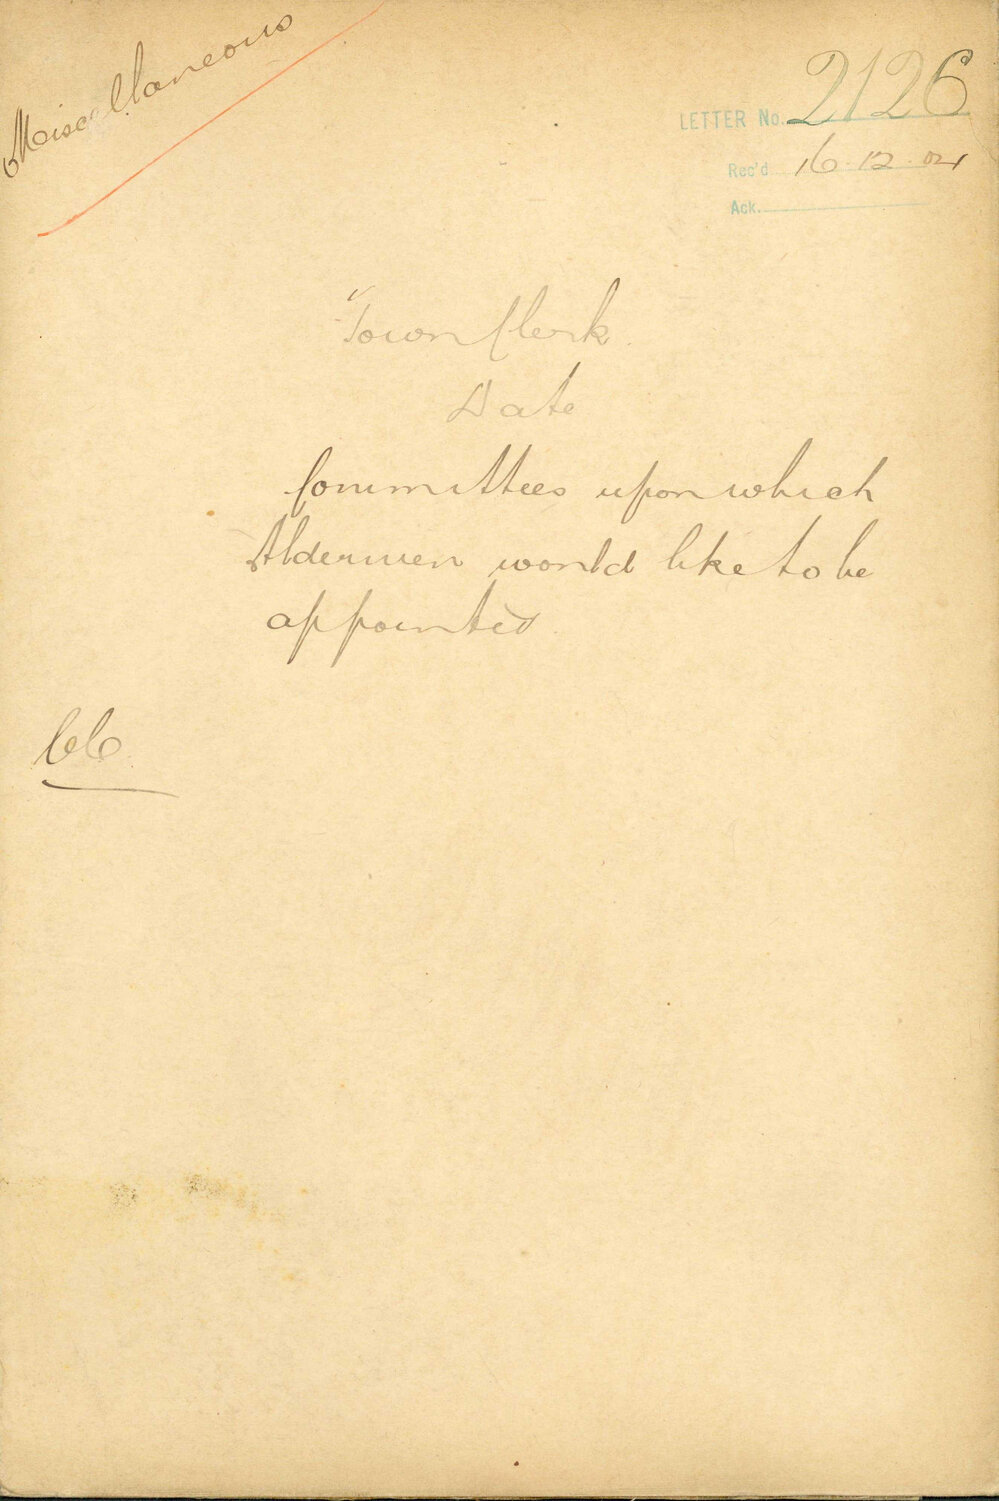 Miscellaneous
LETTER No. 2126
Rec'd 16.12.04
Ack.
Town Clerk
Date
Committees upon which
Aldermen would like to be
appointed